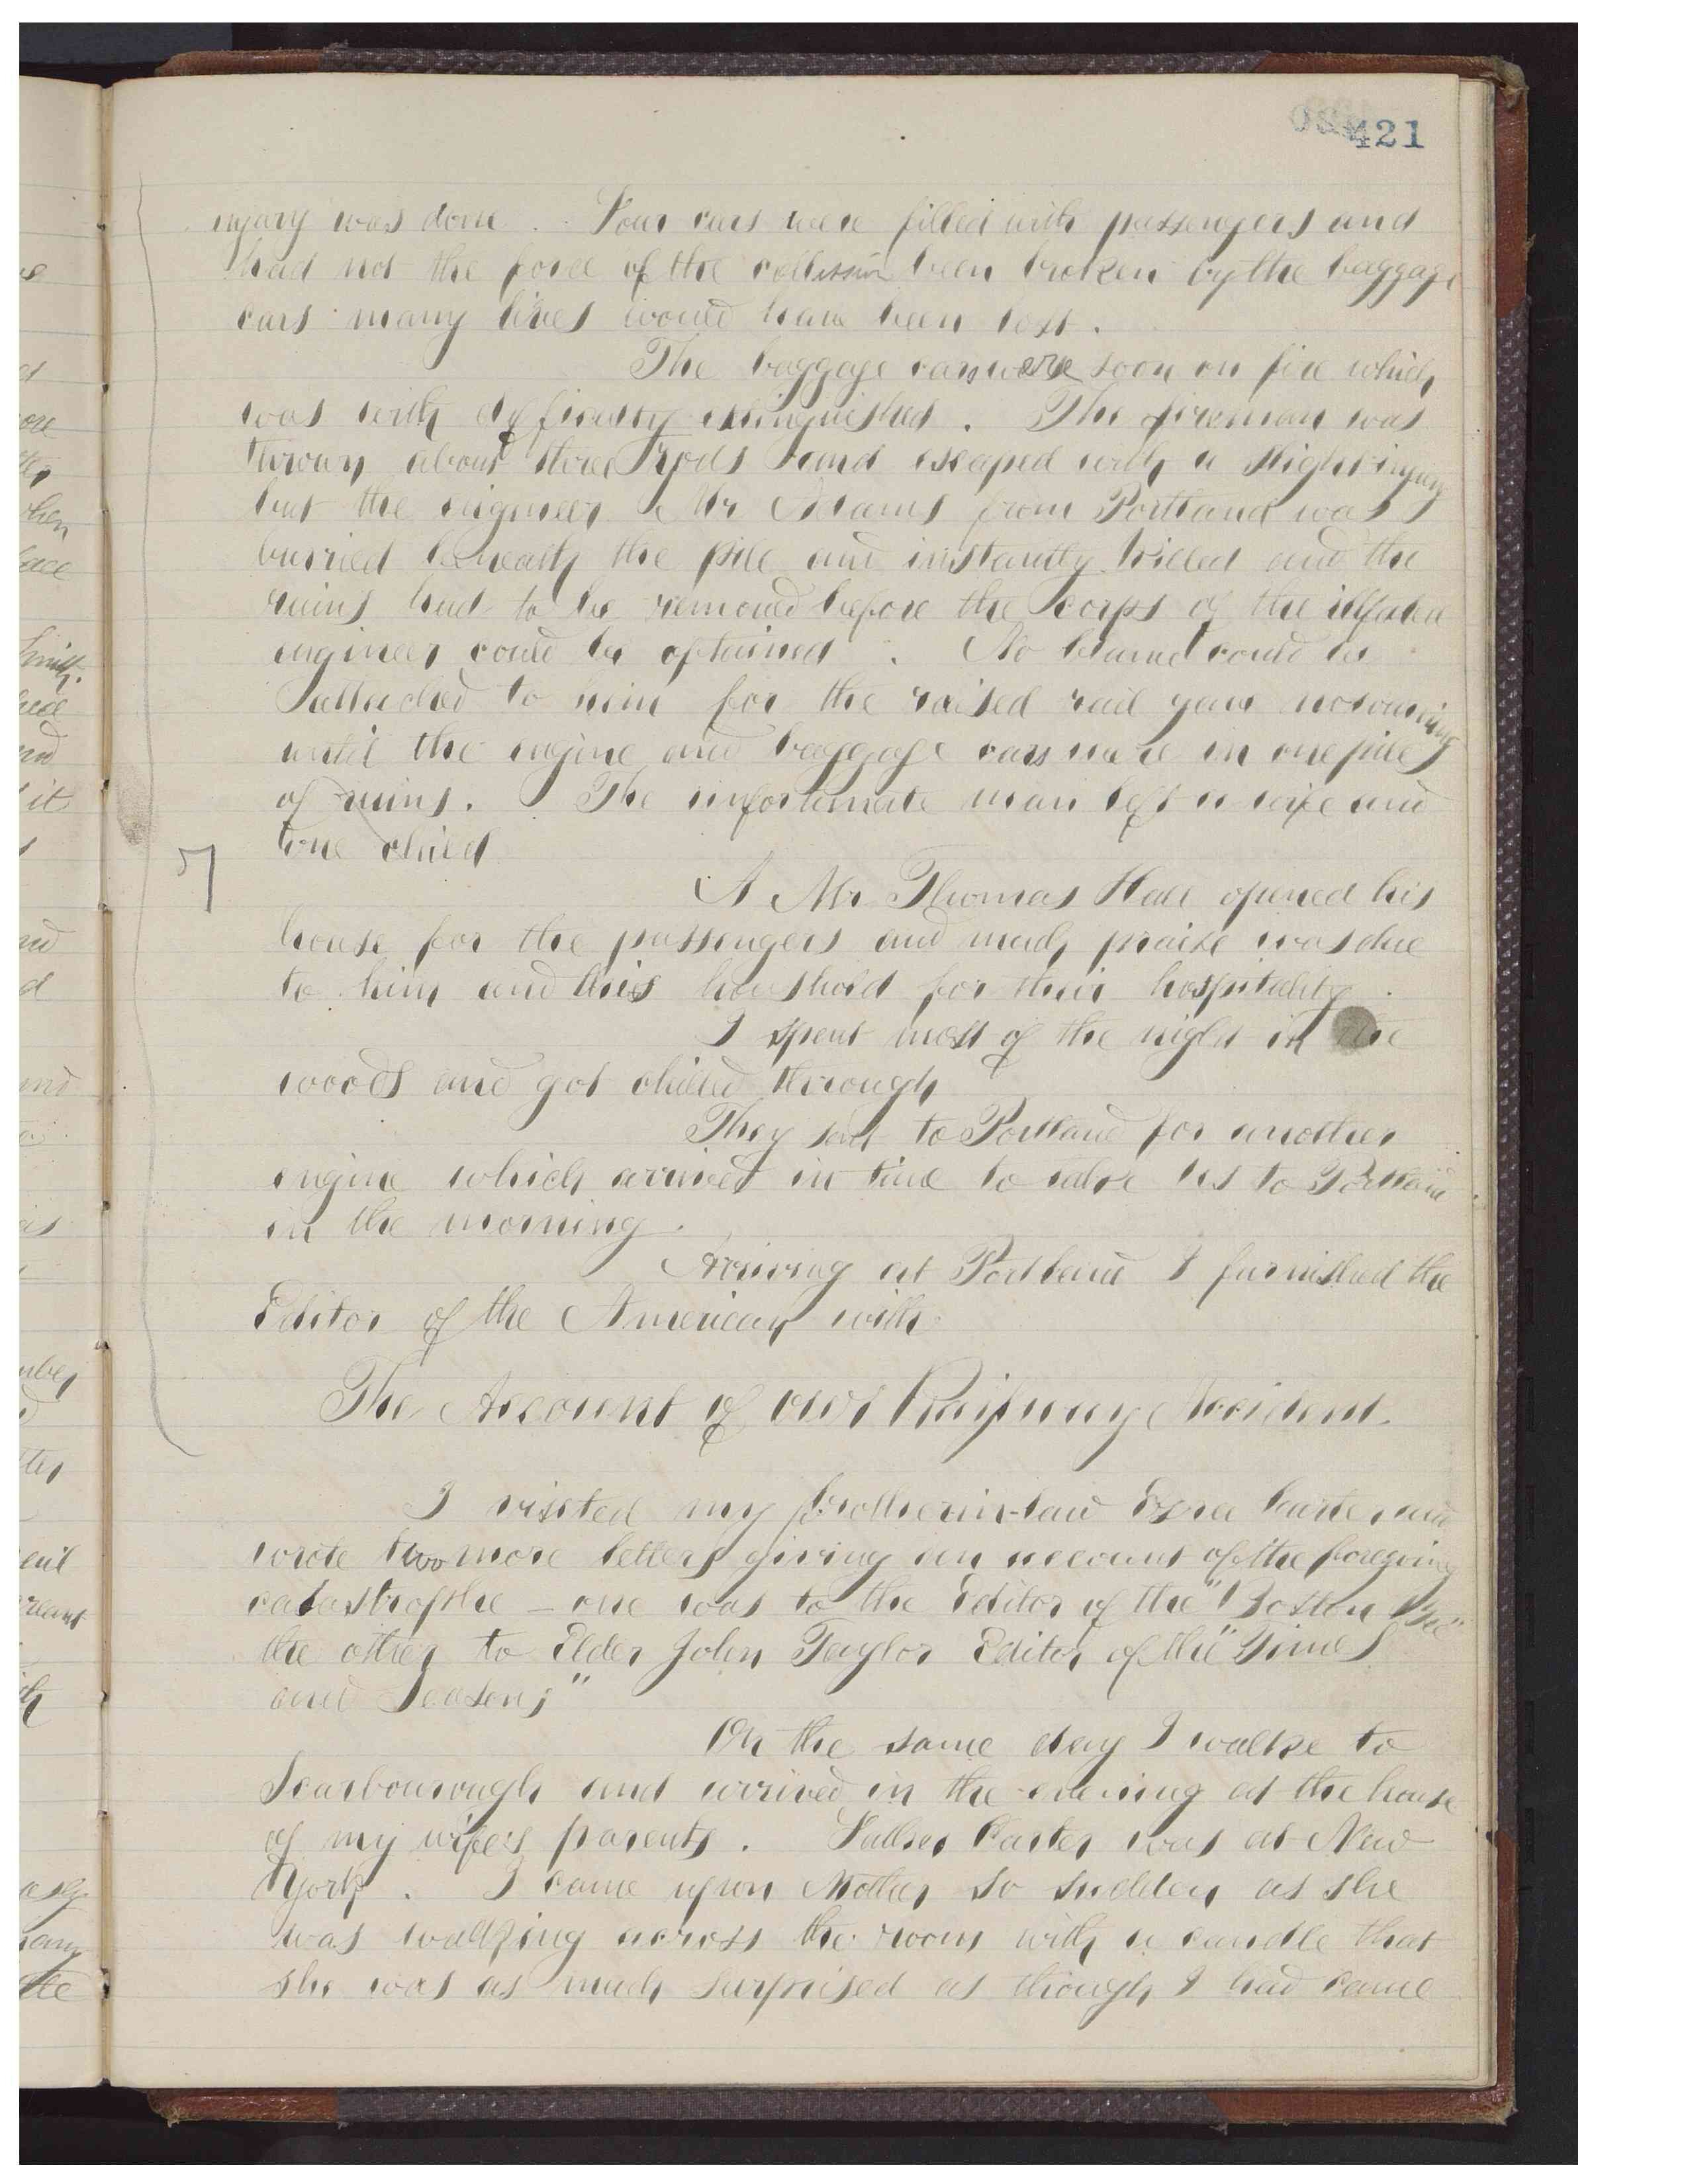 421
injury was done. Four cars were filled with passengers and
had not the force of the collission been broken by the baggage
cars many lives would have been lost.
The baggage cars were soon on fire which
was with difficulty extinguished. The fireman was
thrown about three rods and escaped with a slight injury
but the engineer Mr Adams from Portland was
burried beneath the pile and instantly killed and the
ruins had to be removed before the corps of the illfated
engineer could be optained. No blame could be
attached to him for the raised rail gave no warning
until the engine and baggage cars were in one pile
of ruins. The unfortunate man left a wife and
one child
A Mr Thomas Hall opened his
house for the passengers and much praise was due
to him and his houshold for their hospitality.
I spent most of the night in the
woods and got chilled through
They sent to Portland for another
engine which arrived in time to take us to Portland
in the morning.
Arriving at Portland I furnished the
Editor of the American with
The Account of our Railway Accident.
I visited my brother-in-law Ezra Carter and
wrote two more letters giving an account of the foregoing
catastrophhe – one was to the Editor of the "Boston Bee"
the other to Elder John Taylor Editor of the "Times
and Seasons"
On the same day I walke to
Scarbourough and arrived in the evening at the house
of my wife's parents. Father Carter was at New
York. I came upon Mother so sudden as she
was walking across the room with a candle that
she was as much surprised as though I had came